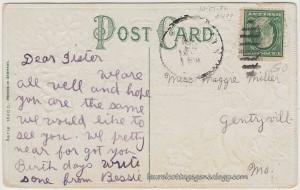 POST CARD
Dear Sister
We are
all well and hope
you are the same
we would like to
see you. We pretty
near for got you
Birth days write
sone from Bessie
Miss Maggie Miller
Gentryvill
Mo.